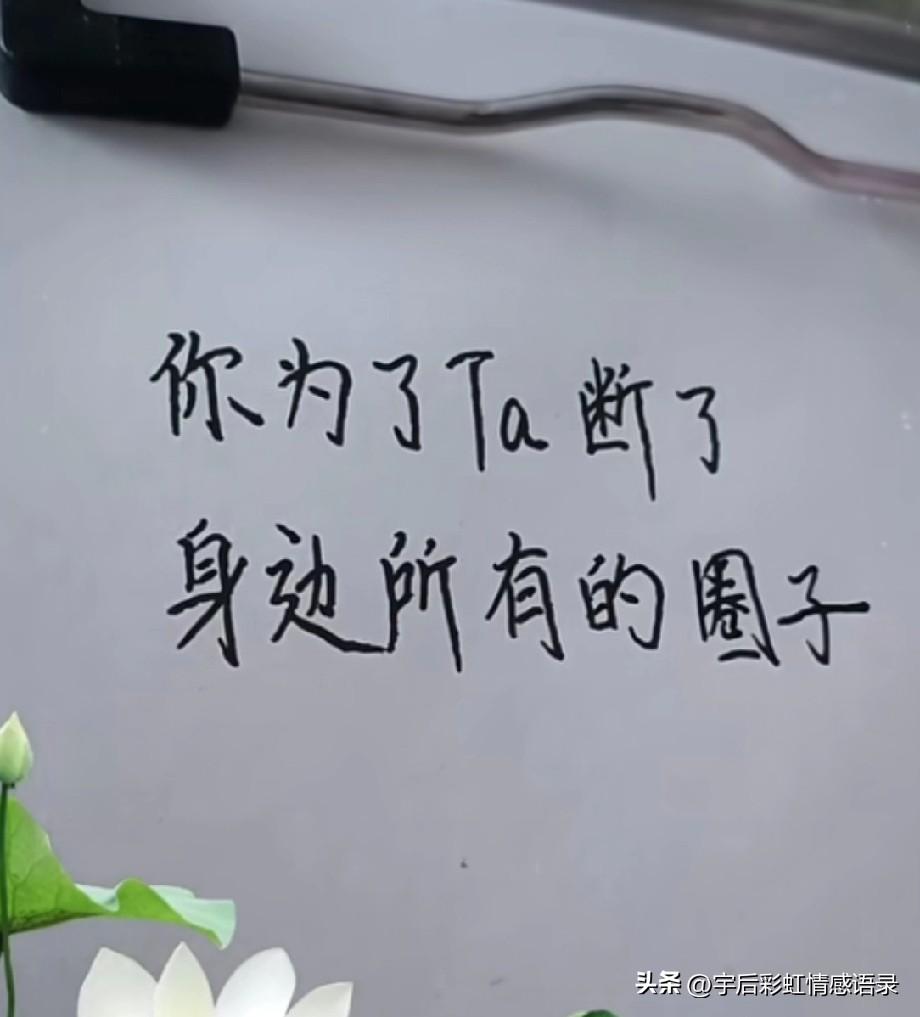 你为了Ta断了
身边所有的圈子
头条 @宇后彩虹情感语录